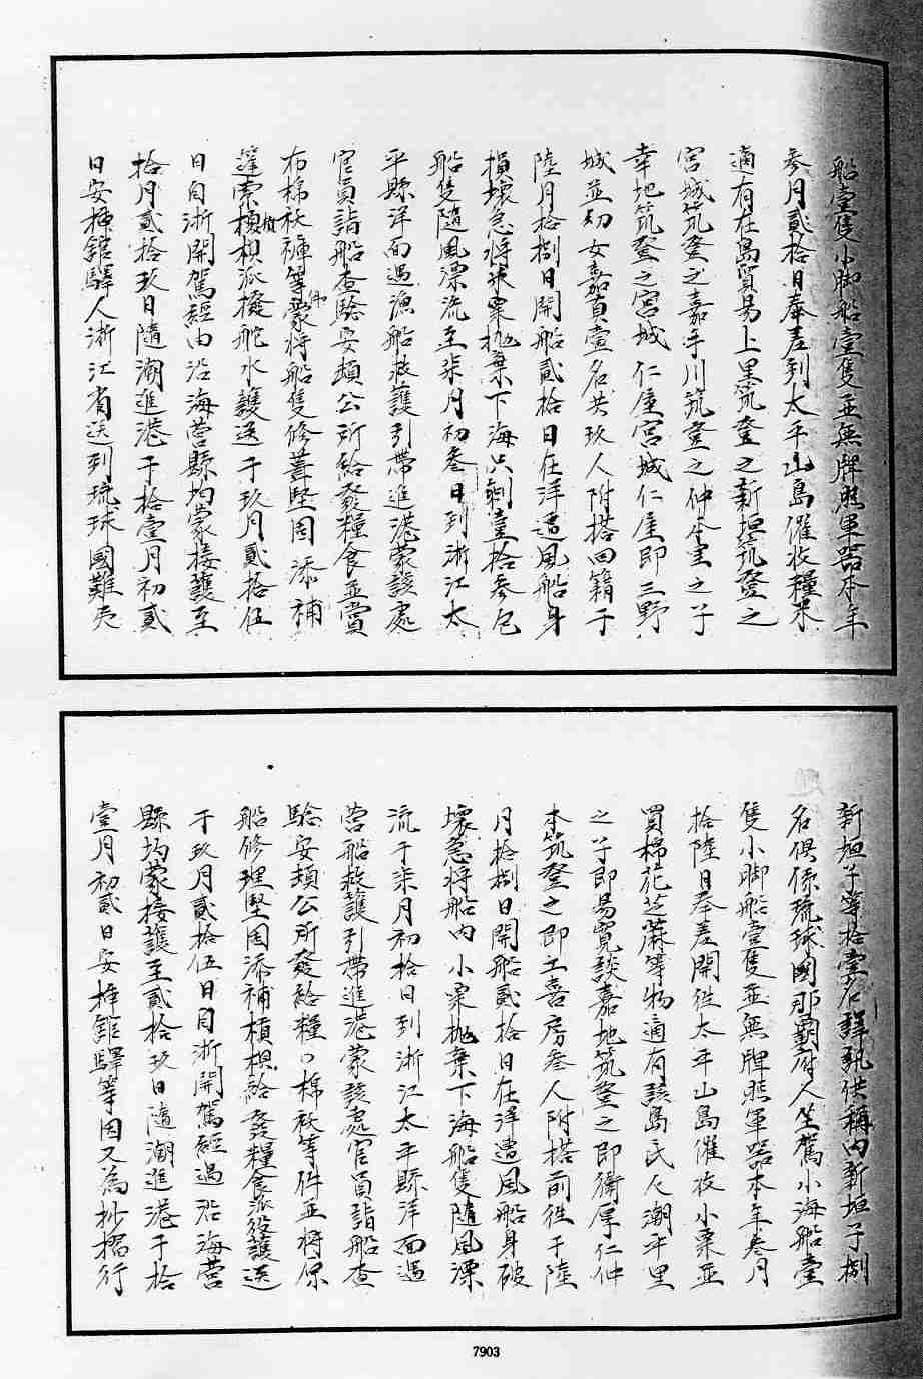 船壹隻小脚船壹隻並無牌照軍器本年
叁月貳拾日奉差到太平山島催收糧米
適有在島貿易上里筑登之新垣筑登之
宮城筑登之嘉手川筑登之仲本里之子
幸地筑登之宮城仁屋宮城仁屋即三野
城並幼女嘉真壹名共玖人附搭回籍于
陸月拾捌日開船貳拾日在洋遭風船身
損壞急將米粟拋棄下海只剩壹拾叁包
船隻隨風漂流至柒月初叁日到浙江太
平縣洋面遇漁船救護引帶進港蒙該處
官員詣船查驗安頓公所給發糧食並賞
布棉袄褲等件蒙將船隻修葺堅固添補
篷索槓椇派撥舵水護送于玖月貳拾伍
日自浙開駕經由沿海營縣均蒙接護至
拾月貳拾玖日隨潮進港于拾壹月初貳
日安插館驛人浙江省送到琉球國難夷
新垣子等拾壹名譯訊供稱內新垣子捌
名俱係琉球國那霸府人坐駕小海船壹
隻小脚船壹隻並無牌照軍器本年叁月
拾陸日奉差開往太平山島催收小粟並
買棉花芝蔴等物適有該島民人潮平里
之子即易寬談嘉地筑登之即衛厚仁仲
本筑登之即工喜房叁人附搭前往于陸
月拾捌日開船貳拾日在洋遭風船身破
壞急將船內小粟拋棄下海船隻隨風漂
流于柒月初拾日到浙江太平縣洋面遇
營船救護引帶進港蒙該處官員詣船查
驗安頓公所發給糧口棉袄等件並將原
船修理堅固添補槓椇給發糧食派役護送
于玖月貳拾伍日自浙開駕經過沿海營
縣均蒙接護至貳拾玖日隨潮進港于拾
壹月初貳日安插館驛等因又為抄摺行
7903